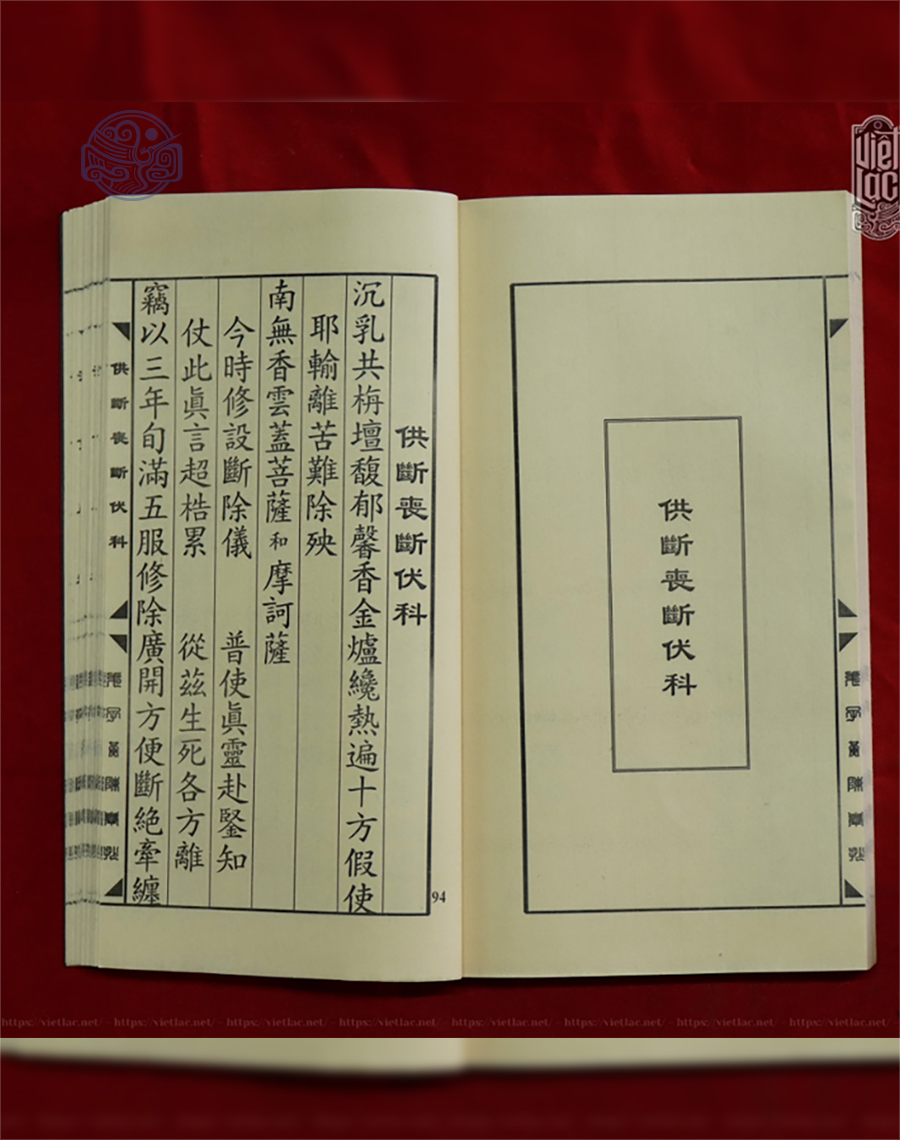 Việt Lạc
供斷喪斷伏科
供斷喪斷伏科
沉乳共栴壇馥郁馨香金爐纔熱遍十方假使
耶輸離苦難除殃
南無香雲蓋菩薩和摩訶薩
今時修設斷除儀 普使眞靈赴鍳知
仗此眞言超梏累 從茲生死各方離
竊以三年旬滿五服修除廣開方便斷絶牽纏
94
供斷喪斷伏科
https://vietlac.net/ - https://vietlac.net/ - https://vietlac.net/ - https://vietlac.net/ - https://vietlac.net/ - https://vietlac.net/